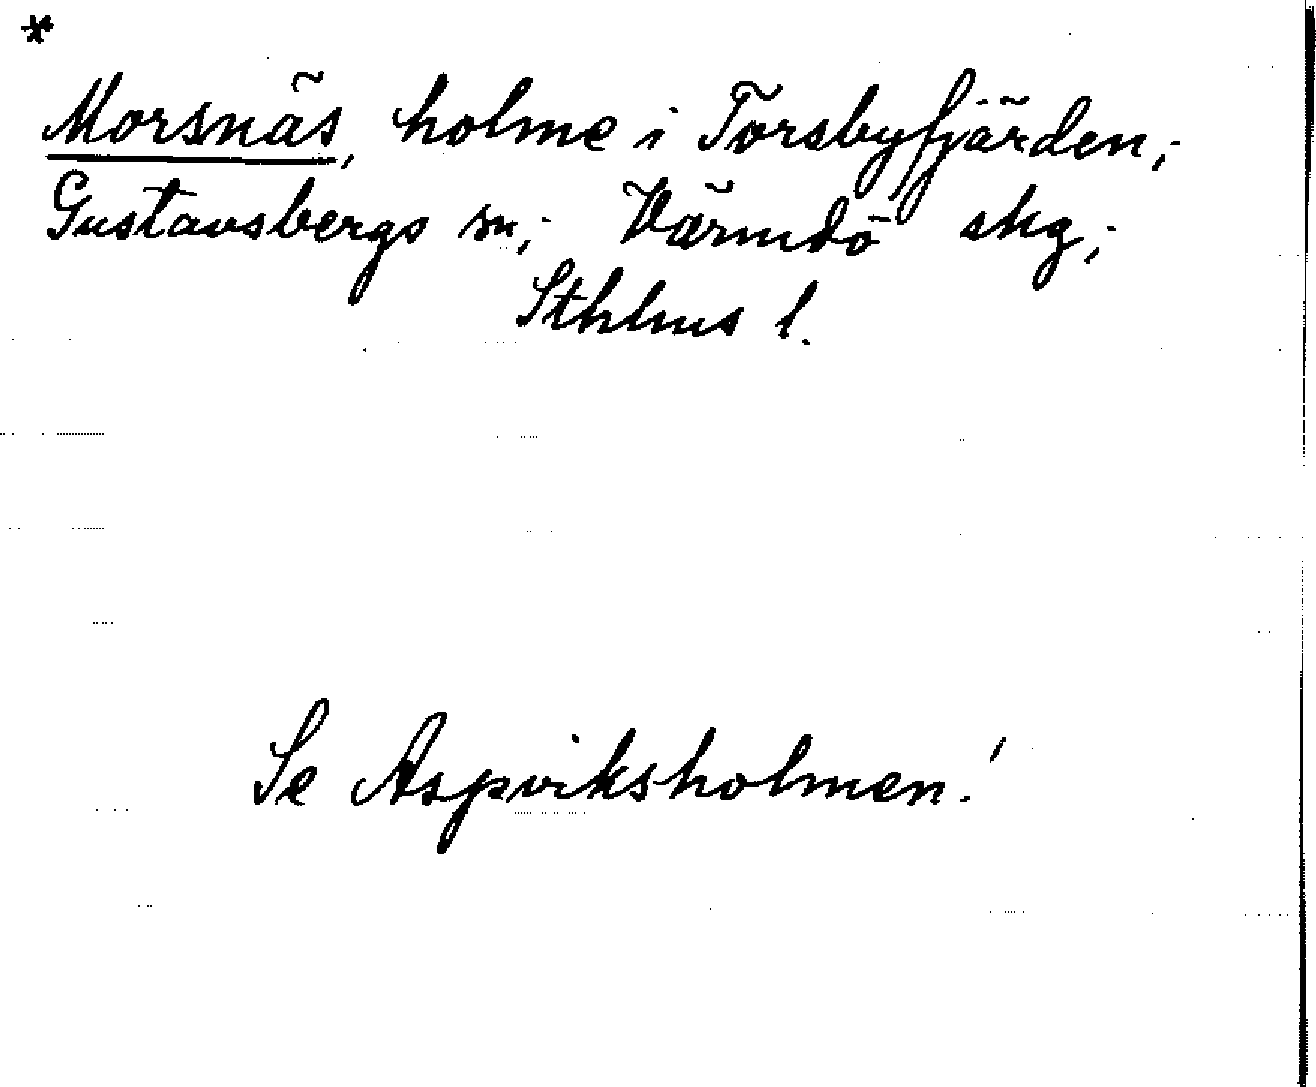 *
Morsnäs, holme i Torsbyfjärden;
Gustavsbergs sn; Värmdö skg;
Sthlms l.
Se Aspviksholmen!